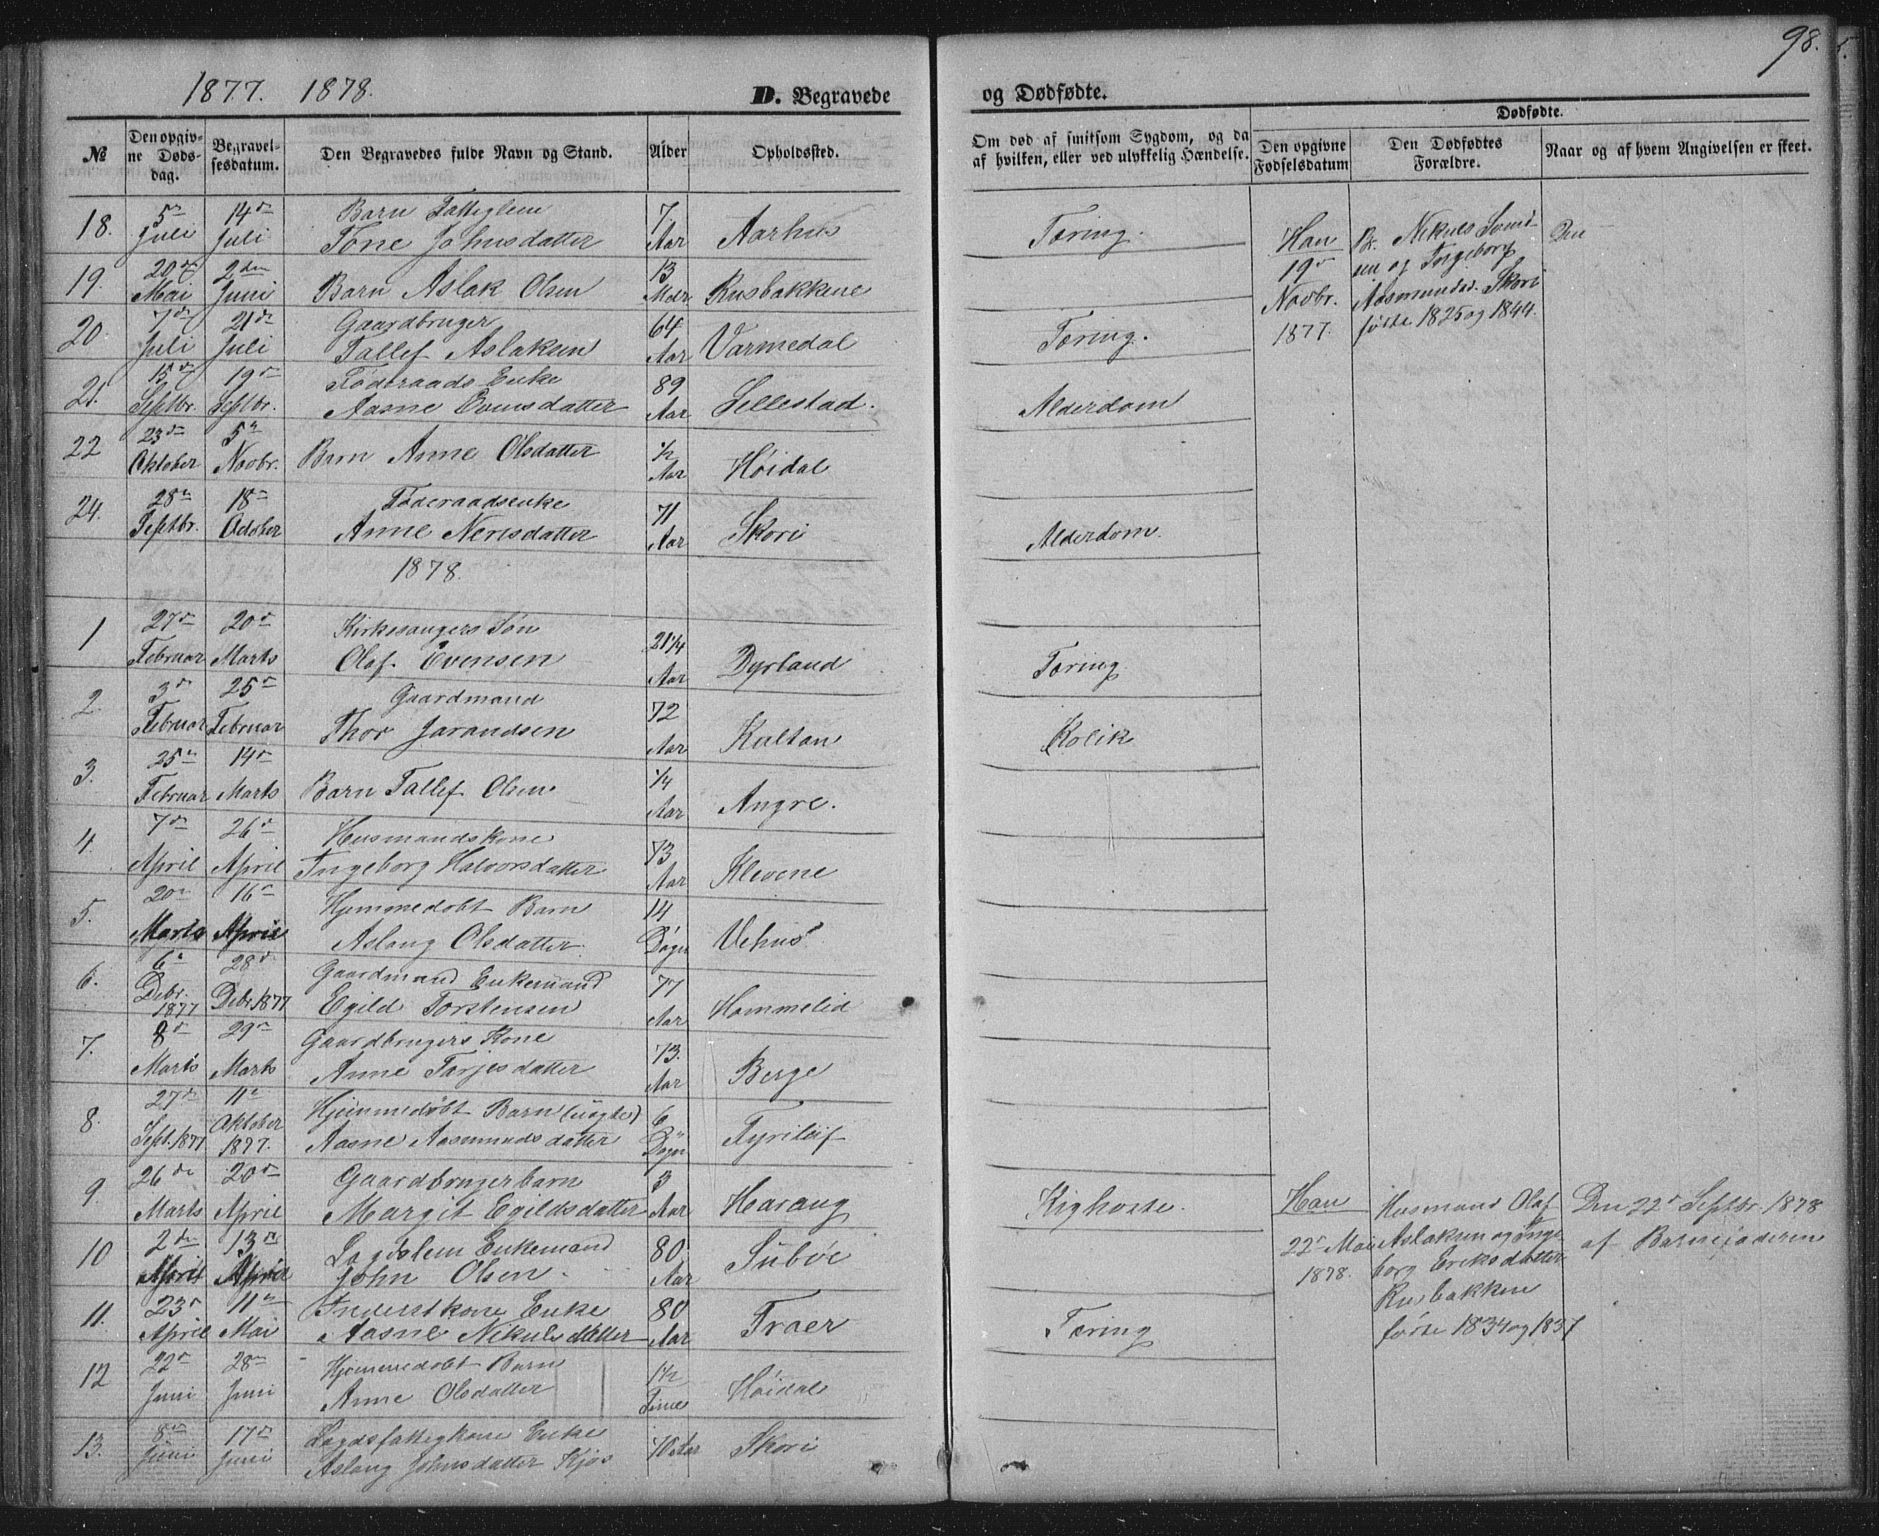 98.
1877. 1878.
D. Begravede og Dødfødte.
Dødfødte.
№
Den opgivne Dødsdag.
Begravelsesdatum.
Den Begravedes fulde Navn og Stand.
Alder
Opholdssted.
Om død af smitsom Sygdom, og da af hvilken, eller ved ulykkelig Hændelse.
Den opgivne Fødselsdatum
Den Dødfødtes Forældre.
Naar og af hvem Angivelsen er skeet.
18. 5te Juli 14de Juli Barn Fattiglem Tone Johnsdatter 7. Aar Aarhus Tæring.
Han 19de Novbr. 1877. Nikuls Svendsen og Ingeborg Aasmundsd. Skori fødte 1825 og 1844. Den
19. 20de Mai 2den Juni Barn Aslak Olsen 13 Mdr Rusbakkene
20 7de Juli 21de Juli Gaardbruger Tallef Aslaksen 64 Aar Varmedal Tæring.
21. 15de Septbr. 19de Septbr. Føderaads Enke Aasne Evensdatter 89 Aar Lellestad. Alderdom
22 23de Oktober 5te Novbr. Barn Anne Olsdatter 1/2 Aar Høidal
24. 28de Septbr. 18de October Føderaadsenke Anne Nerisdatter 71 Aar Skori Alderdom.
1878.
1 27de Februar 20de Marts Kirkesangers Søn Olaf Evensen 21 1/4 Aar Dyrland Tæring
2. 3de Februar 25de Februar Gaardmand Thor Jarandsen 72 Aar Kultan Kolik
3. 25de Februar 14de Marts Barn Tallef Olsen 1/4 Aar Angre.
4. 7de April 26de April Husmandskone Ingeborg Halvorsdatter 73 Aar Klevene
5. 20de Marts 16de April Hjemmedøbt Barn Aslaug Olsdatter 14 Døgn Vehus
6. 6te Debr. 1877 28de Debr. 1877 Gaardmand Enkemand Egild Torstensen 77 Aar Hommelid
7. 8de Marts 29de Marts Gaardbrugers Kone Anne Tarjesdatter 73. Aar Berge
8. 27de Sept. 1877 11te Oktober 1877. Hjemmedøbt Barn (uægte) Aasne Aasmundsdatter 6 Døgn
9. 26de Marts 20de April Gaardbrugerbarn Margit Egildsdatter 3 Aar Harang Kighoste.
Han 22de Mai 1878. Husmand Olaf Aslaksen og Ingeborg Eriksdatter Rusbakken fødte 1834 og 1837 Den 22de Septbr. 1878 af Barnefaderen
10 2den April 13de April Lagdslem Enkemand John Olsen. 80 Aar Subøe
11. 23de April 11te Mai Inderstkone Enke Aasne Nikulsdatter 80 Aar Traer Tæring
12 22de Juni 28de Juni Hjemmedøbt Barn Anne Olsdatter 1 1/2 Time Høidal
13. 8de Juni 17de Juni Lagdsfattigkone Enke Aslaug Johnsdatter Kjøs 70 Aar Skori